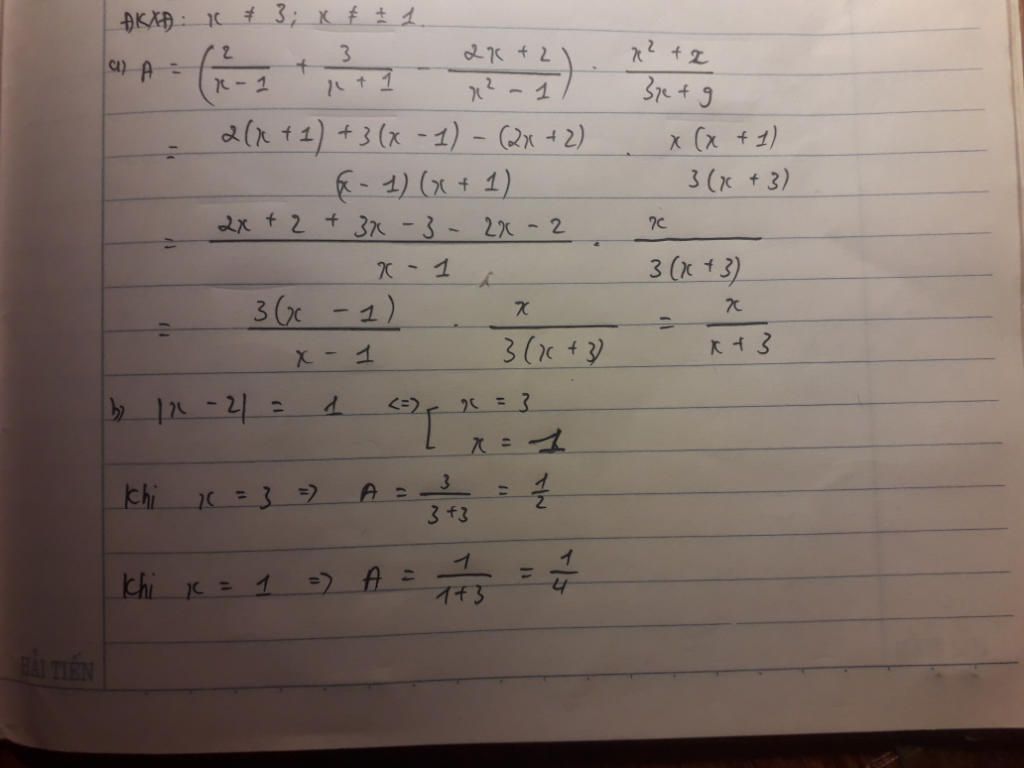 ĐKXĐ: x ≠ 3; x ≠ ± 1.
a) A = (2/(x - 1) + 3/(x + 1) - (2x + 2)/(x² - 1)) . (x² + x)/(3x + 9)
= (2(x + 1) + 3(x - 1) - (2x + 2))/((x - 1)(x + 1)) . x(x + 1)/(3(x + 3))
= (2x + 2 + 3x - 3 - 2x - 2)/(x - 1) . x/(3(x + 3))
= 3(x - 1)/(x - 1) . x/(3(x + 3)) = x/(x + 3)
b) |x - 2| = 1 <=> [ x = 3
x = 1
Khi x = 3 => A = 3/(3+3) = 1/2
Khi x = 1 => A = 1/(1+3) = 1/4
HẢI TIẾN